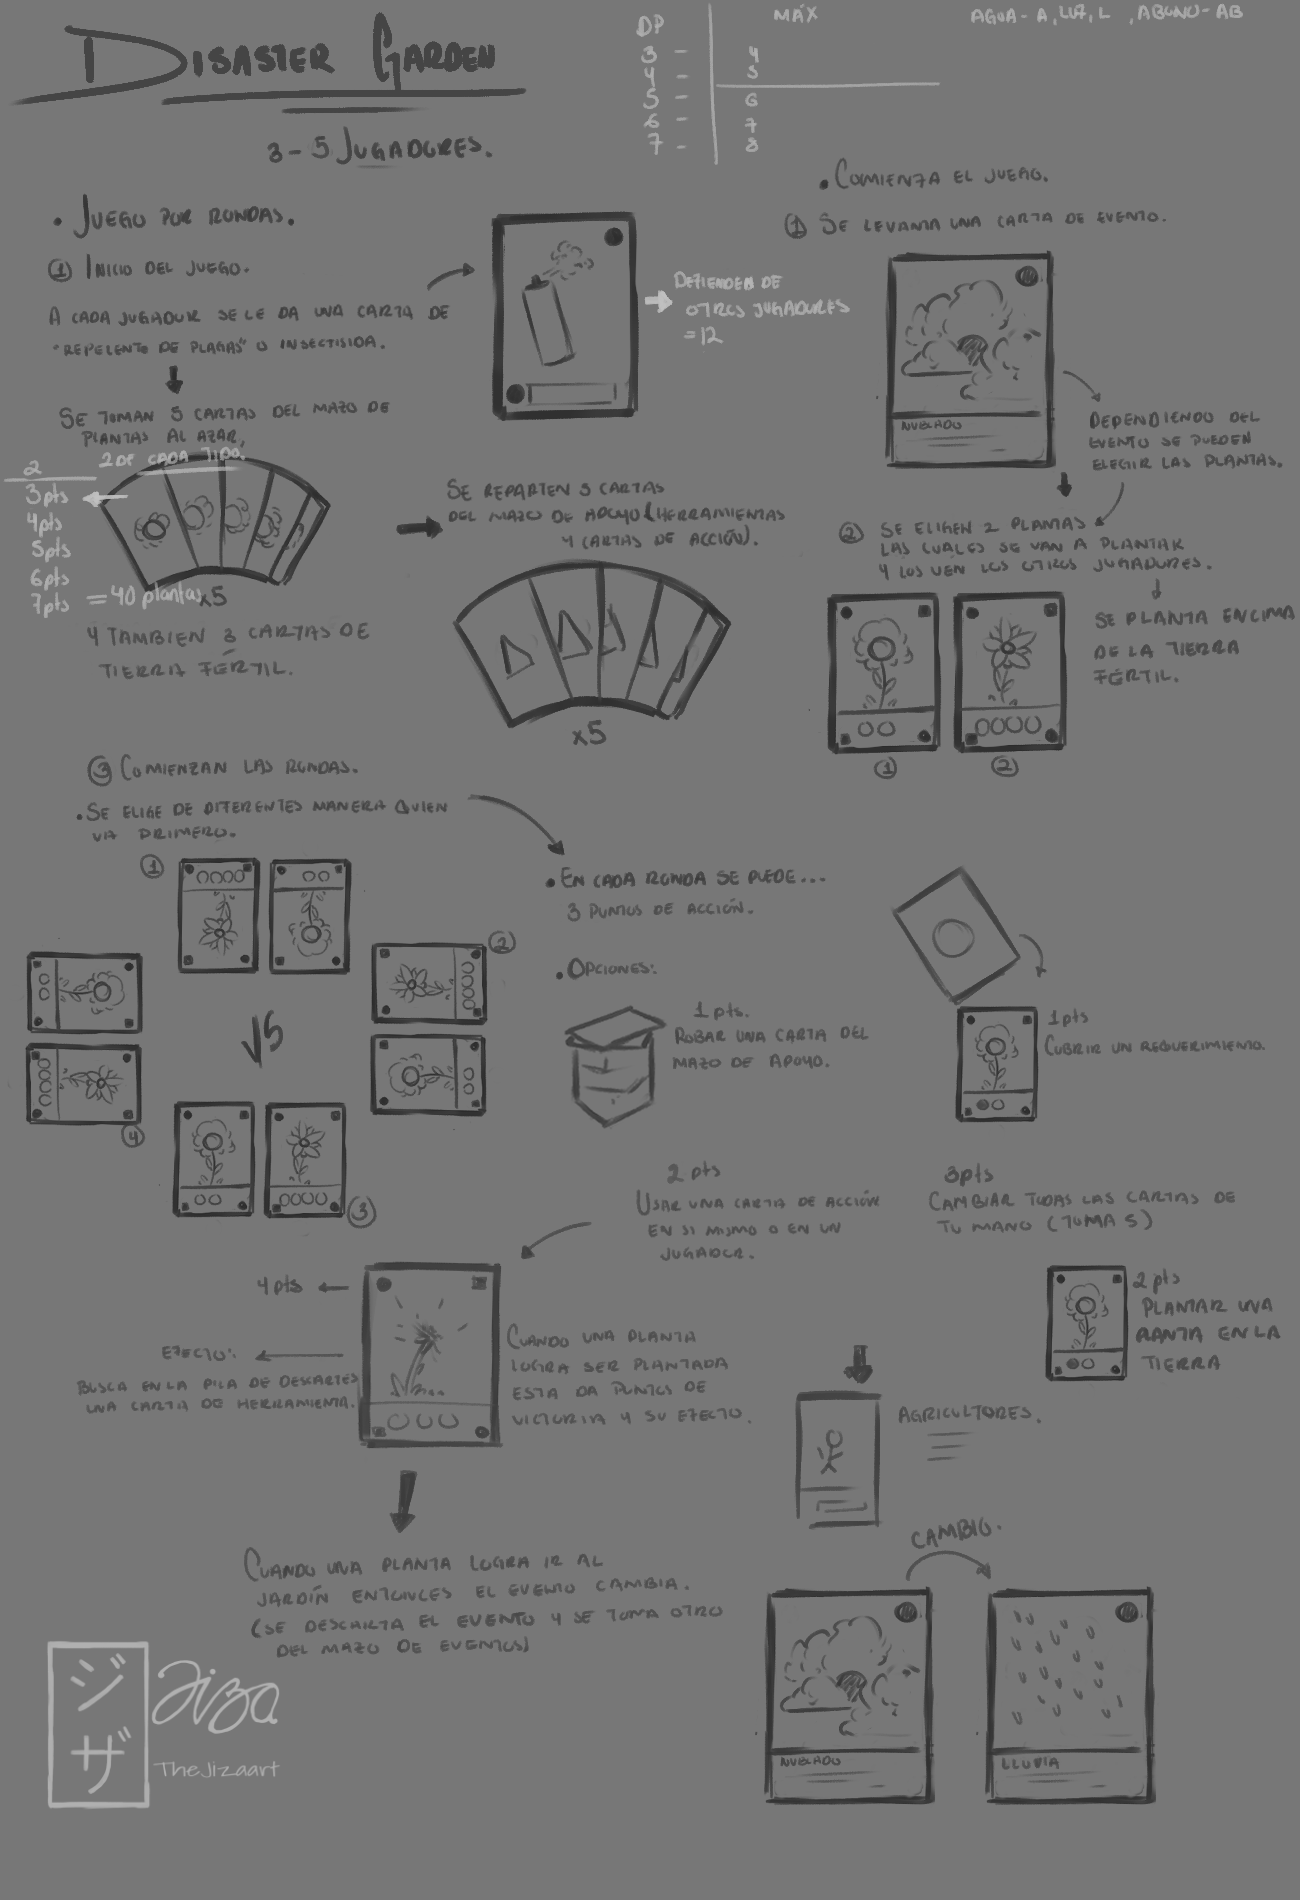 DISASTER GARDEN
3 - 5 JUGADORES.
DP
MÁX
3 - 4
4 - 5
5 - 6
6 - 7
7 - 8
AGUA - A, LUZ, L , ABONO - AB
• JUEGO POR RONDAS.
① INICIO DEL JUEGO.
A CADA JUGADOR SE LE DA UNA CARTA DE
"REPELENTO DE PLAGAS" O INSECTISIDA.
DEFIENDEN DE
OTROS JUGADORES
=12
SE TOMAN 5 CARTAS DEL MAZO DE
PLANTAS AL AZAR,
2 DE CADA TIPO.
2
3pts
4pts
5pts
6pts
7pts = 40 plantas
x5
Y TAMBIEN 3 CARTAS DE
TIERRA FÉRTIL.
SE REPARTEN 5 CARTAS
DEL MAZO DE APOYO (HERRAMIENTAS
Y CARTAS DE ACCIÓN).
x5
• COMIENZA EL JUEGO.
① SE LEVANTA UNA CARTA DE EVENTO.
NUBLADO
DEPENDIENDO DEL
EVENTO SE PUEDEN
ELEGIR LAS PLANTAS.
② SE ELIGEN 2 PLANTAS
LAS CUALES SE VAN A PLANTAR
Y LOS VEN LOS OTROS JUGADORES.
SE PLANTA ENCIMA
DE LA TIERRA
FÉRTIL.
①
②
③ COMIENZAN LAS RONDAS.
• SE ELIGE DE DIFERENTES MANERA QUIEN
VA PRIMERO.
①
②
VS
④
③
• EN CADA RONDA SE PUEDE...
3 PUNTOS DE ACCIÓN.
• OPCIONES:
1 pts.
ROBAR UNA CARTA DEL
MAZO DE APOYO.
1pts
CUBRIR UN REQUERIMIENTO.
2 pts
USAR UNA CARTA DE ACCIÓN
EN SI MISMO O EN UN
JUGADOR.
3pts
CAMBIAR TODAS LAS CARTAS DE
TU MANO (TOMA 5)
2 pts
PLANTAR UNA
PLANTA EN LA
TIERRA
4 pts
EFECTO:
BUSCA EN LA PILA DE DESCARTES
UNA CARTA DE HERRAMIENTA.
CUANDO UNA PLANTA
LOGRA SER PLANTADA
ESTA DA PUNTOS DE
VICTORIA Y SU EFECTO.
AGRICULTORES.
CUANDO UNA PLANTA LOGRA IR AL
JARDÍN ENTONCES EL EVENTO CAMBIA.
(SE DESCARTA EL EVENTO Y SE TOMA OTRO
DEL MAZO DE EVENTOS)
CAMBIO.
NUBLADO
LLUVIA
ジザ
Jiza
TheJizaart